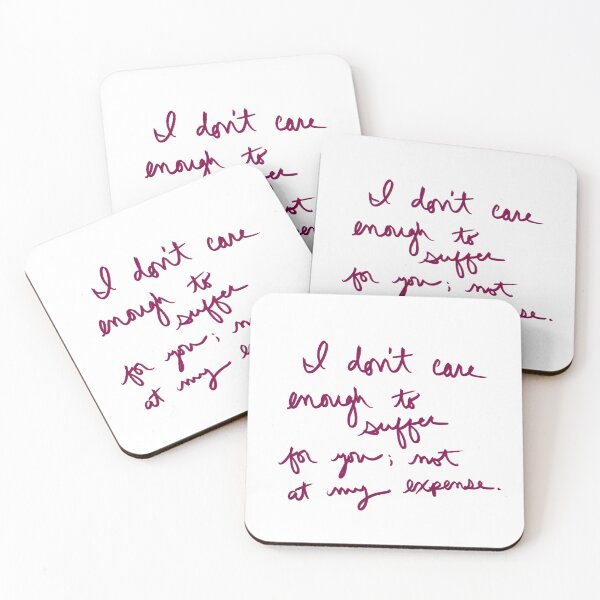 I don't care
enough to
suffer
I don't care
enough to
suffer
for you; not
I don't care
enough to
suffer
for you;
at my
I don't care
enough to
suffer
for you; not
at my expense.